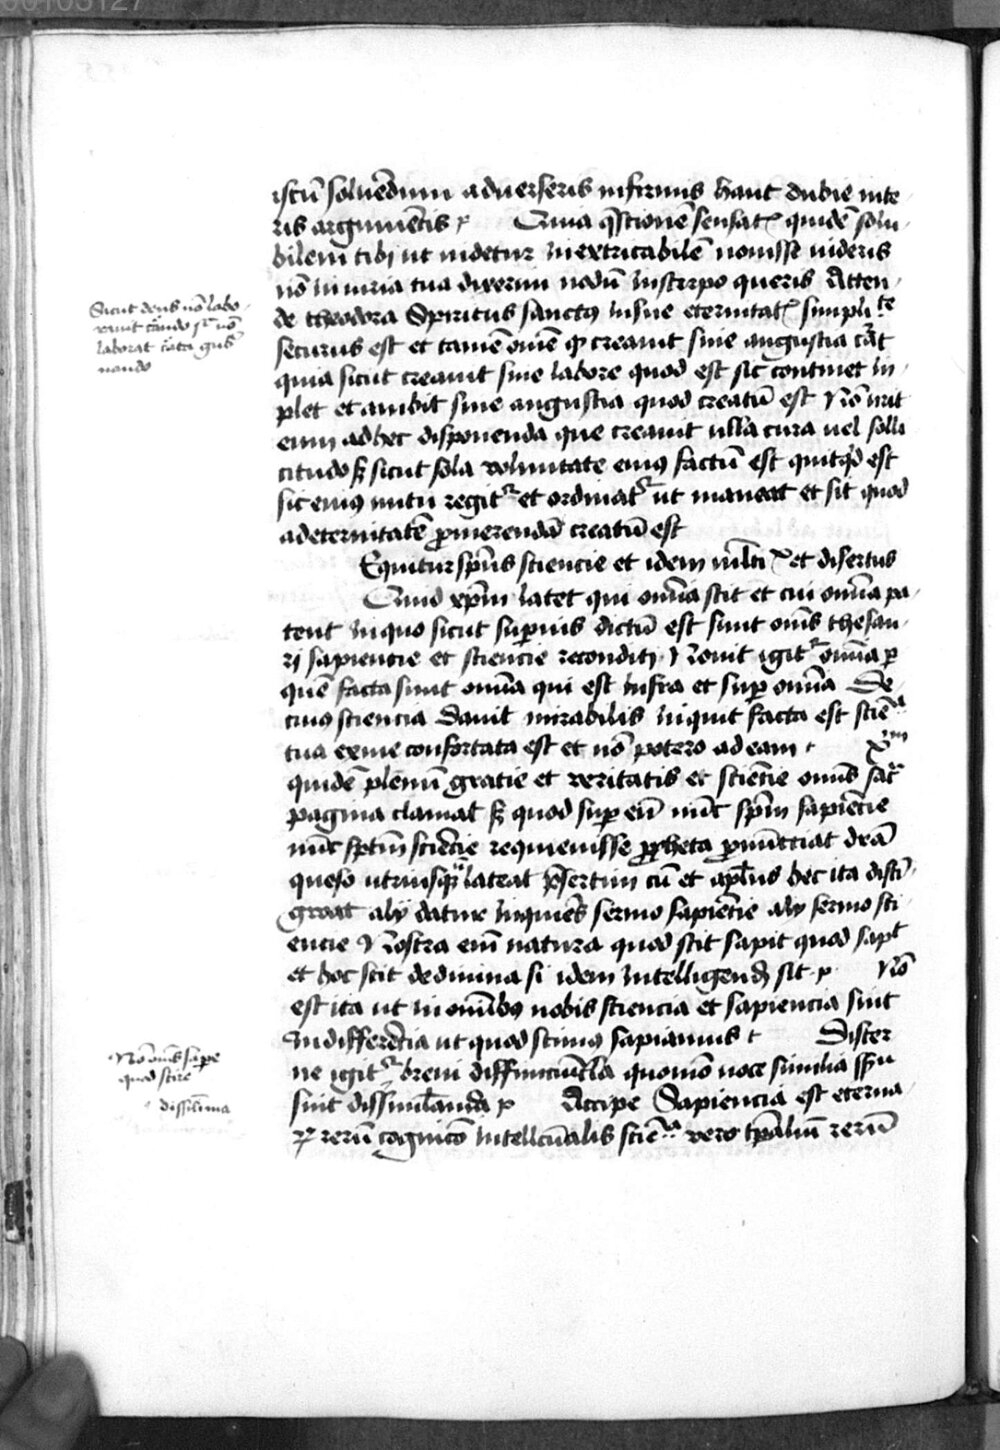 istū soluēdum aduerseris infirmis haut dubie inte
ris argumētis P Quia q̄stionē sensatꝭ quidē solu
bilem tibi ut uidetur inextricabilē nouisse uideris
nō iniuria tua dixerim nodū in scirpo queris Atten
de theodora Spiritus sanctus in sue eternitatꝭ simplite
securus est et tamē omē qd creauit sine angustia
quia sicut creauit sine labore quod est sic continet in
plet et ambit sine angustia quod creatū est Nō urit
eum ad hec disponenda que creauit ulla cura uel solli
citudo sꝫ sicut sola uoluntate eius factū est quitqd est
sic eius nutu regitr et ordinatr ut maneat et sit quod
ad eternitatē ꝓmerendā creatū est
Equitur spūs sciencie et idem et disertus
Quid xpm latet qui omnia scit et cui omnia pa
tent in quo sicut superius dictū est sunt omēs thesau
ri sapiencie et sciencie reconditi Nouit igitr omnia per
quē facta sunt omnia qui est infra et supra omnia De
cuius sciencia Dauit mirabilis inquit facta est sciēa
tua ex me confortata est et nō potero ad eam t Xm
quidē plenū gratie et ueritatis et sciētie omnis sac
pagina clamat sꝫ quod super eū nūc spm sapiētie
nūc spm sciētie requieuisse ꝓpheta ꝓnūctiat
queso utriusqꝫ lateat ꝑsertim cū et aplus hec ita disti
gwat alij datur inquiēs sermo sapiētie alij sermo sci
encie Nostra enī natura quod scit sapit quod sapt
et hoc scit de diuina si idem intelligendꝫ sit P Nō
est ita ut in omnibꝫ nobis sciencia et sapiencia sint
indifferētia ut quod scimus sapiamus t Discer
ne igitr breui diffinciūcula quomō uoce similia sensu
sint dissimilanda P Accipe Sapiencia est eterna
rꝝ rerū cognicō intellectualis sciēa uero tꝑaliū rerū
Sicut deus nō labo
rauit cāndo sic nō
laborat cāta gub
nando
Nō omēs sape
quod scire
dissilīma